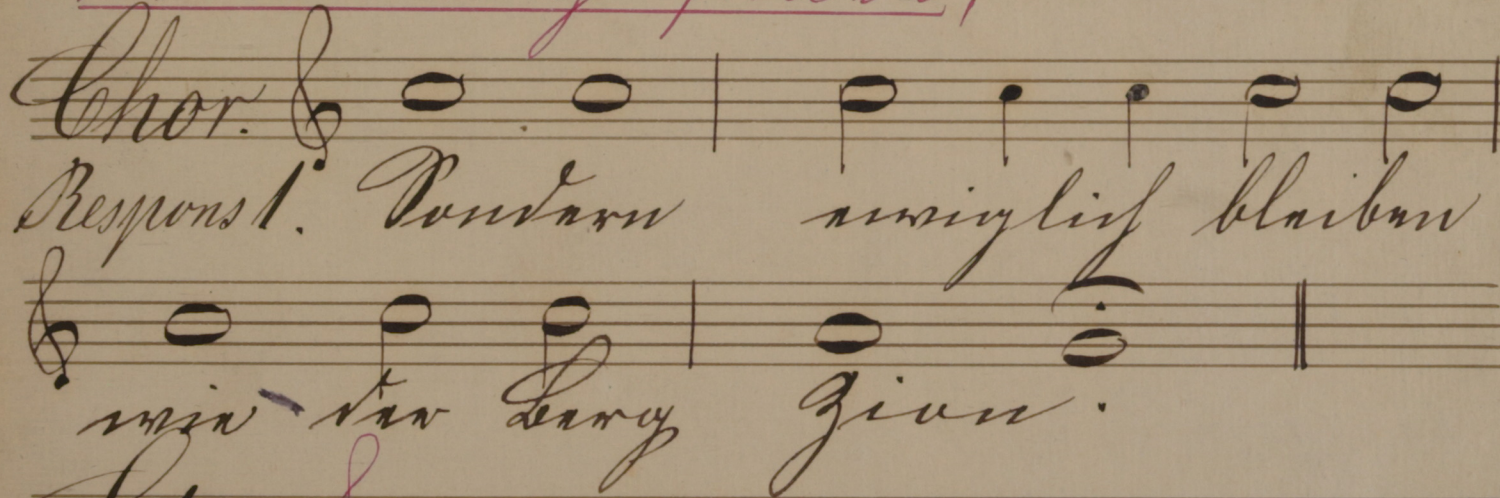 Chor.
Respons 1. Sondern ewiglich bleiben
wie der Berg Zion.